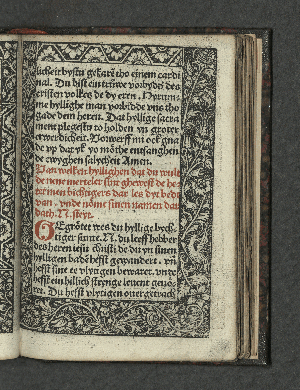 licheit bystu gekarē tho einem cardi
nal. Du bist ein trüwe vorbyder des
cristen volkes de dy eren. Nym
me hyllighe man vorbidde vns tho
gade dem heren. Dat hyllige sacra
ment plegestu to holden yn groter
erwerdicheit. Vorwerff mi ock gna
de vp dat yk yo möthe entfanghen
de ewyghen salycheit Amen.
Van welken hyllighen dat du wult
de nene merteler sint ghewest de he
ten men bichtigers dar les dyt bedt
van. vnde nöme sinen namen dar
dath. N. steyt.
Gegrötet wes du hyllige bych
tiger sante. N. du leeff hebber
des heren iesu christi de du yn sinen
hylligen badē hefst gewandert. vñ
hefst sine ee vlytigen bewaret. vnde
hefst ein hillich strenge leuent geuö
ret. Du hefst vlytigen ouergetrach